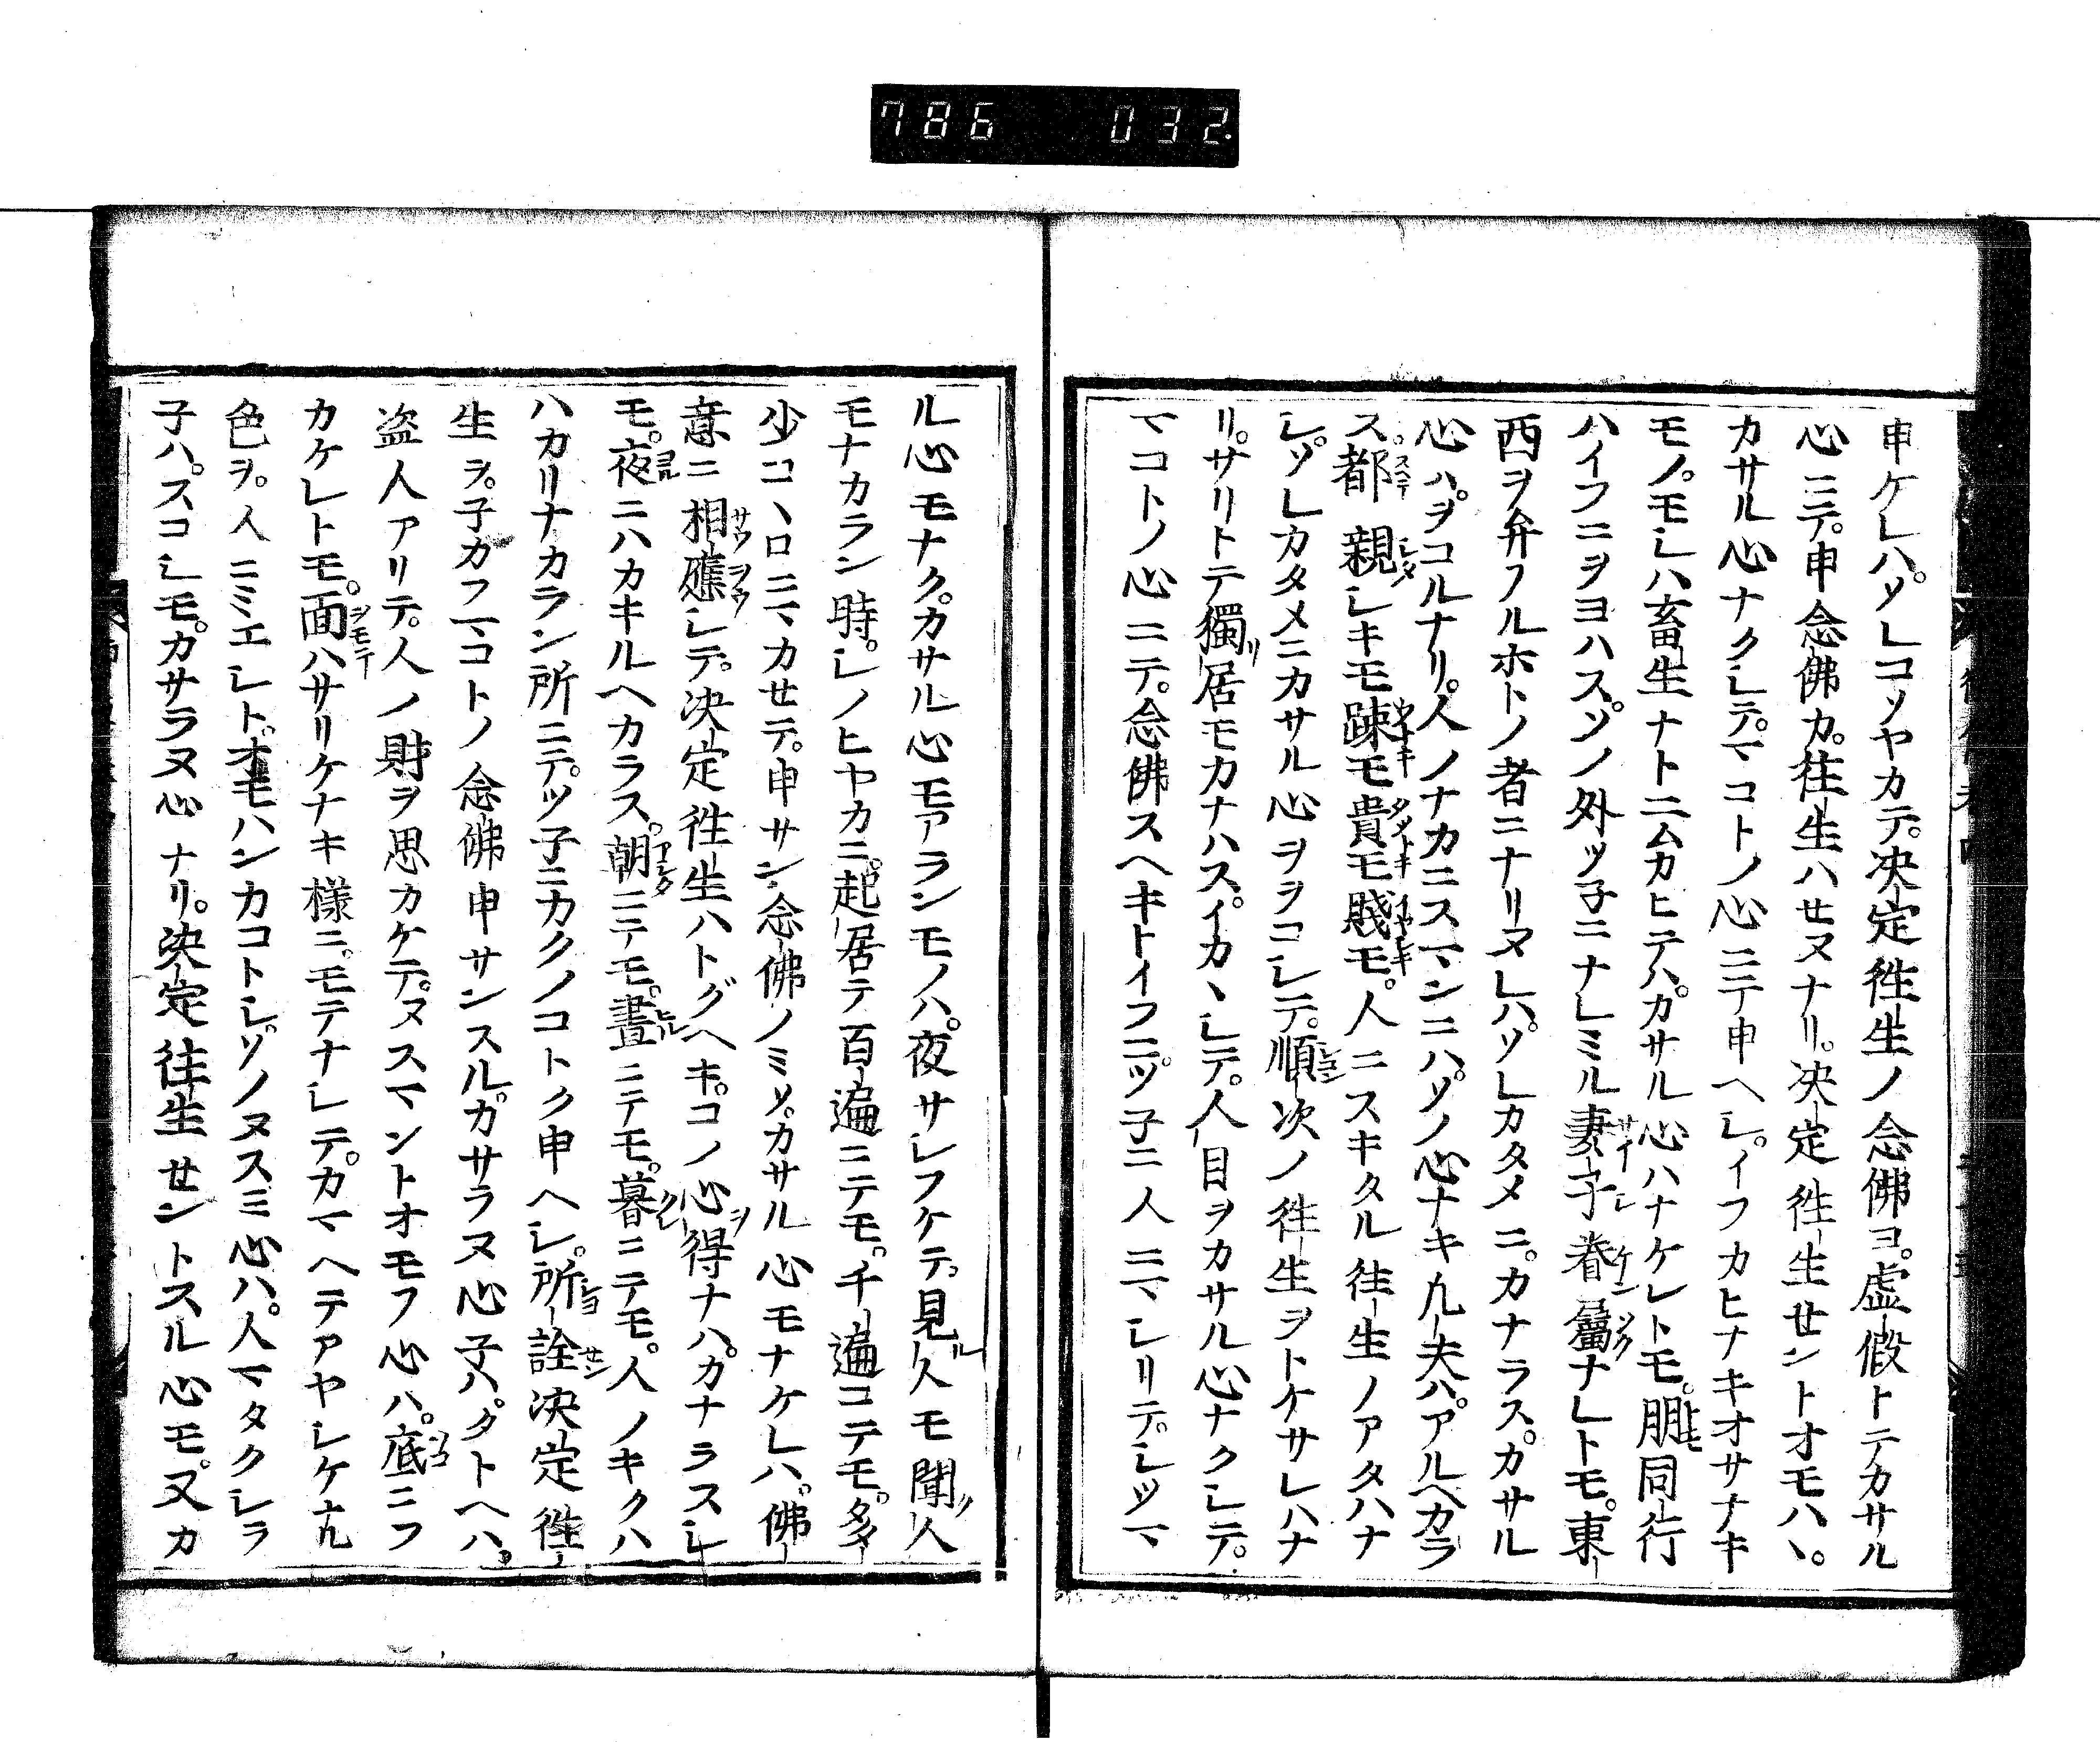 786 032
申ケレハ。ソレコソヤカテ。決定往生ノ念佛ヨ。虚假トテカサル
心ニテ。申念佛カ。往生ハセヌナリ。決定往生セントオモハヽ。
カサル心ナクシテ。マコトノ心ニテ申ヘシ。イフカヒナキオサナキ
モノ。モシハ畜生ナトニムカヒテハ。カサル心ハナケレトモ。朋同行
ハイフニヲヨハス。ソノ外ツ子ニナレミル妻子眷屬ナレトモ。東
西ヲ弁フルホトノ者ニナリヌレハ。ソレカタメニ。カナラス。カサル
心ハ。ヲコルナリ。人ノナカニスマンニハ。ソノ心ナキ凡夫ハ。アルヘカラ
ス。都親シキモ踈モ貴モ賤モ。人ニスキタル往生ノアタハナ
シ。ソレカタメニカサル心ヲヲコシテ。順次ノ往生ヲトケサレハナ
リ。サリトテ獨居モカナハス。イカヽシテ。人目ヲカサル心ナクシテ。
マコトノ心ニテ。念佛スヘキトイフニ。ツ子ニ人ニマシリテ。シツマ
ル心モナク。カサル心モアランモノハ。夜サシフケテ。見人モ聞人
モナカラン時。シノヒヤカニ。起居テ百遍ニテモ。千遍コテモ。多
少コヽロニマカセテ。申サン念佛ノミソ。カサル心モナケレハ。佛
意ニ相應シテ。決定往生ハトグヘキ。コノ心得ナハ。カナラスシ
モ。夜ニハカキルヘカラス。朝ニテモ。晝ニテモ。暮ニテモ。人ノキクハ
ハカリナカラン所ニテ。ツ子ニカクノコトク申ヘシ。所詮決定往
生ヲ。子カフマコトノ念佛申サンスル。カサラヌ心子ハ。タトヘハ。
盗人アリテ。人ノ財ヲ思カケテ。ヌスマントオモフ心ハ。底ニフ
カケレトモ。面ハサリケナキ様ニ。モテナシテ。カマヘテアヤシケナル
色ヲ。人ニミエシト。オモハンカコトシ。ソノヌスミ心ハ。人マタクシラ
子ハ。スコシモ。カサラヌ心ナリ。決定往生セントスル心モ。又カ